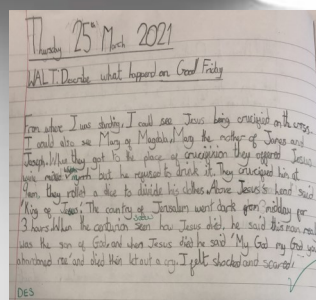 Thursday 25th March 2021
WALT: Describe what happened on Good Friday
From where I was standing, I could see Jesus being crucified on the cross.
I could also see Mary of Magdala, Mary the mother of James and
Joseph. When they got to the place of crucifixion they offered Jesus
wine mixed but he refused to drink it. They crucified him at
9am, they rolled a dice to divide his clothes. Above Jesus's head said
'King of Jews'. The country of Jerusalem went dark from midday for
3 hours. When the centurion saw how Jesus died, he said this man
was the son of God and when Jesus died he said "My God my God you
abandoned me' and died then let out a cry. I felt shocked and scared!
DES